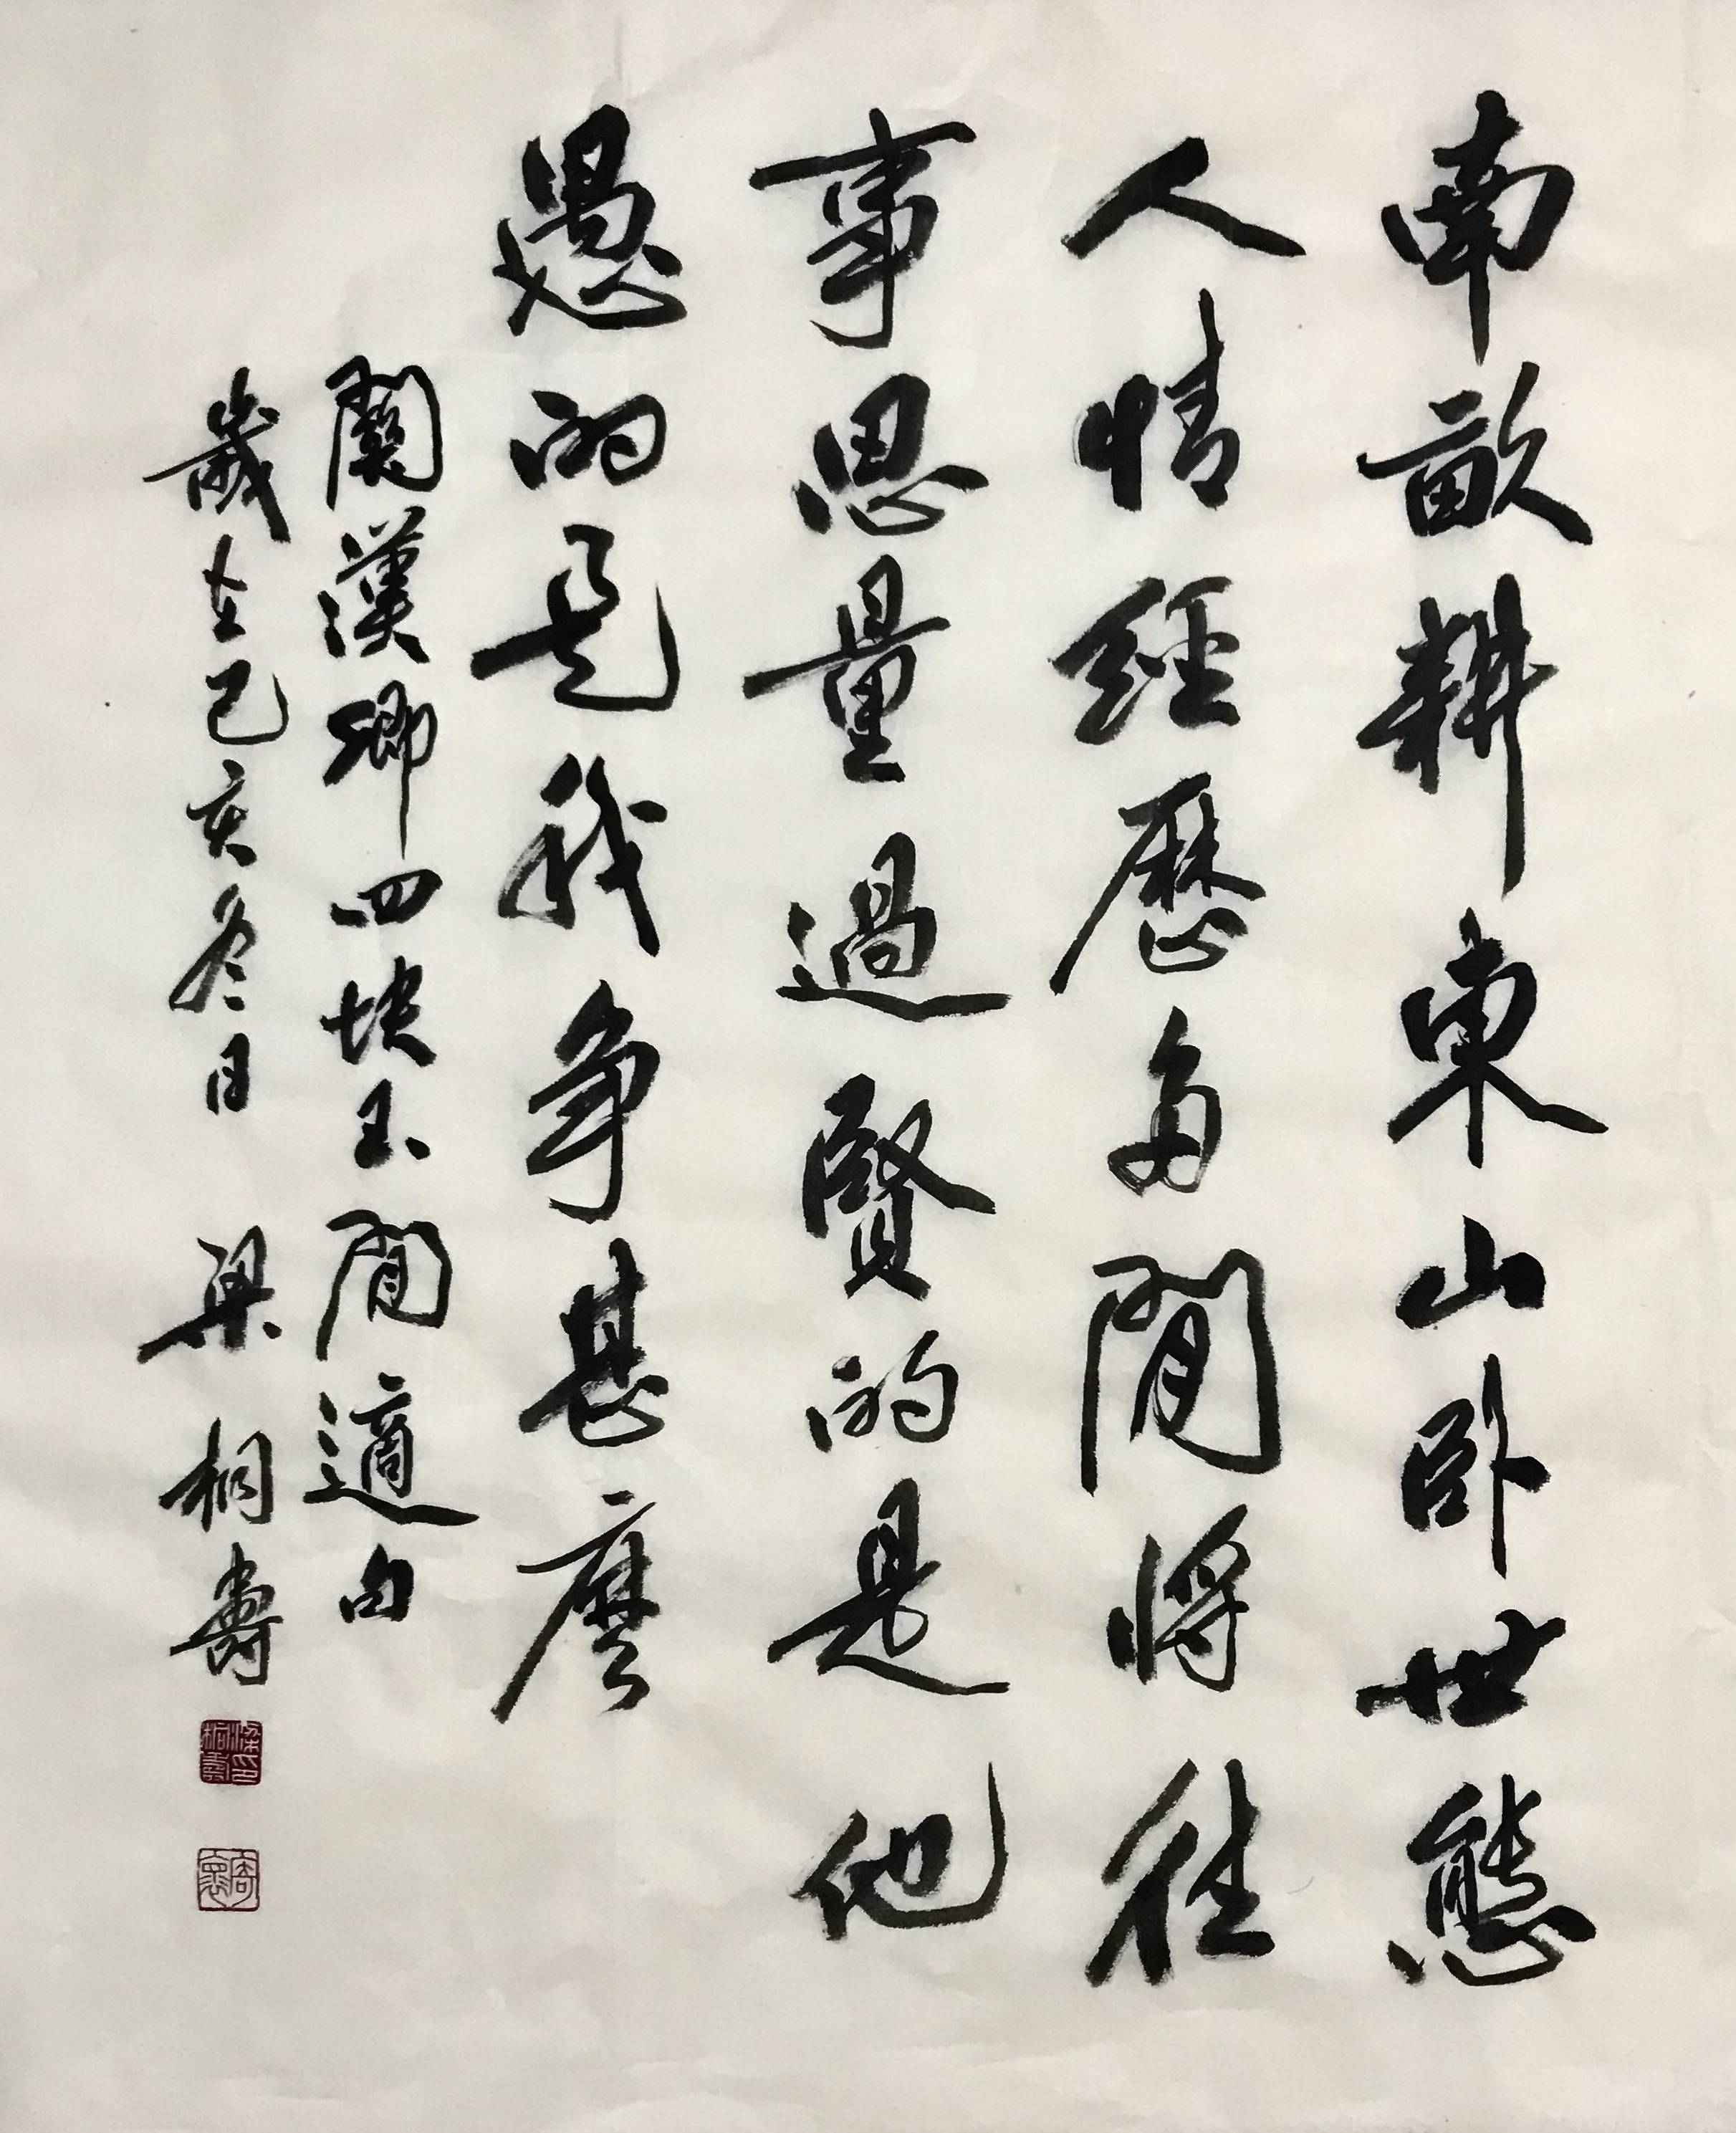 南畝耕東山卧世態
人情經歷多閒將往
事思量過賢的是他
愚的是我争甚麼
關漢卿四塊玉閒適句
歲在己亥冬日 梁桐壽